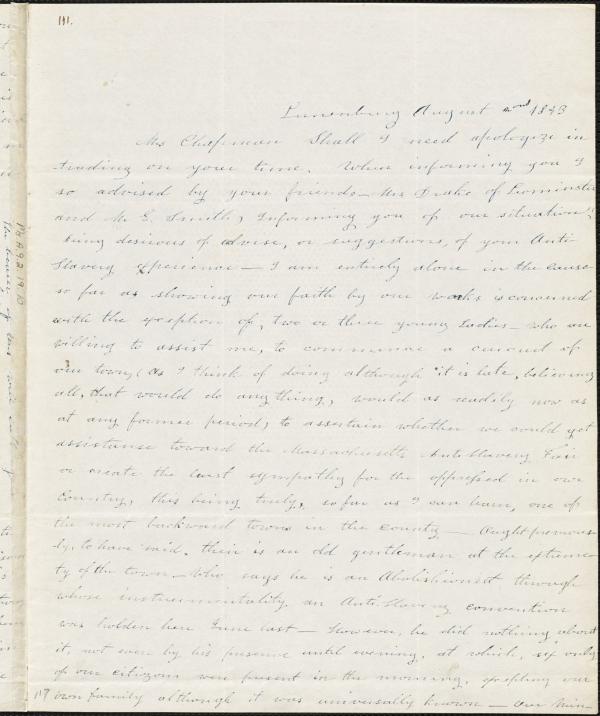 111.
Lunenburg August 2nd 1843
Mrs Chapman Shall I need apologize in
truding on your time. When informing you I
so advised by your friends - Mrs Drake of Leominster
and Mr E. Smith, Informing you of our situation
being desirous of advise, or suggestions, of your Anti
Slavery experience - I am entirely alone in the cause
so far as showing our faith by our works is concerned
with the exseption of, two or three young Ladies - who are
willing to assist me, to commence a canvas of
our town, (as I think of doing although it is late, believing
all, that would do anything, would as readily now as
at any former period, to assertain whether we could get
assistance toward the Massachusetts Anti Slavery Fair
or create the least sympathy for the oppressed in our
Country, this being truly, so far as I can learn, one of
the most backward towns in the county - Ought previous-
ly, to have said, their is an old gentleman at the extremi
ty of the town - Who says he is an Abolishionist through
whose instrumentality an Anti Slavery convention
was holden here June last - However, he did nothing about
it, not even by his presence until evening, at which, six only
of our citizens were present in the morning, exsepting our
own family although it was universally known - Our Min-
PB A.9.2.19.10